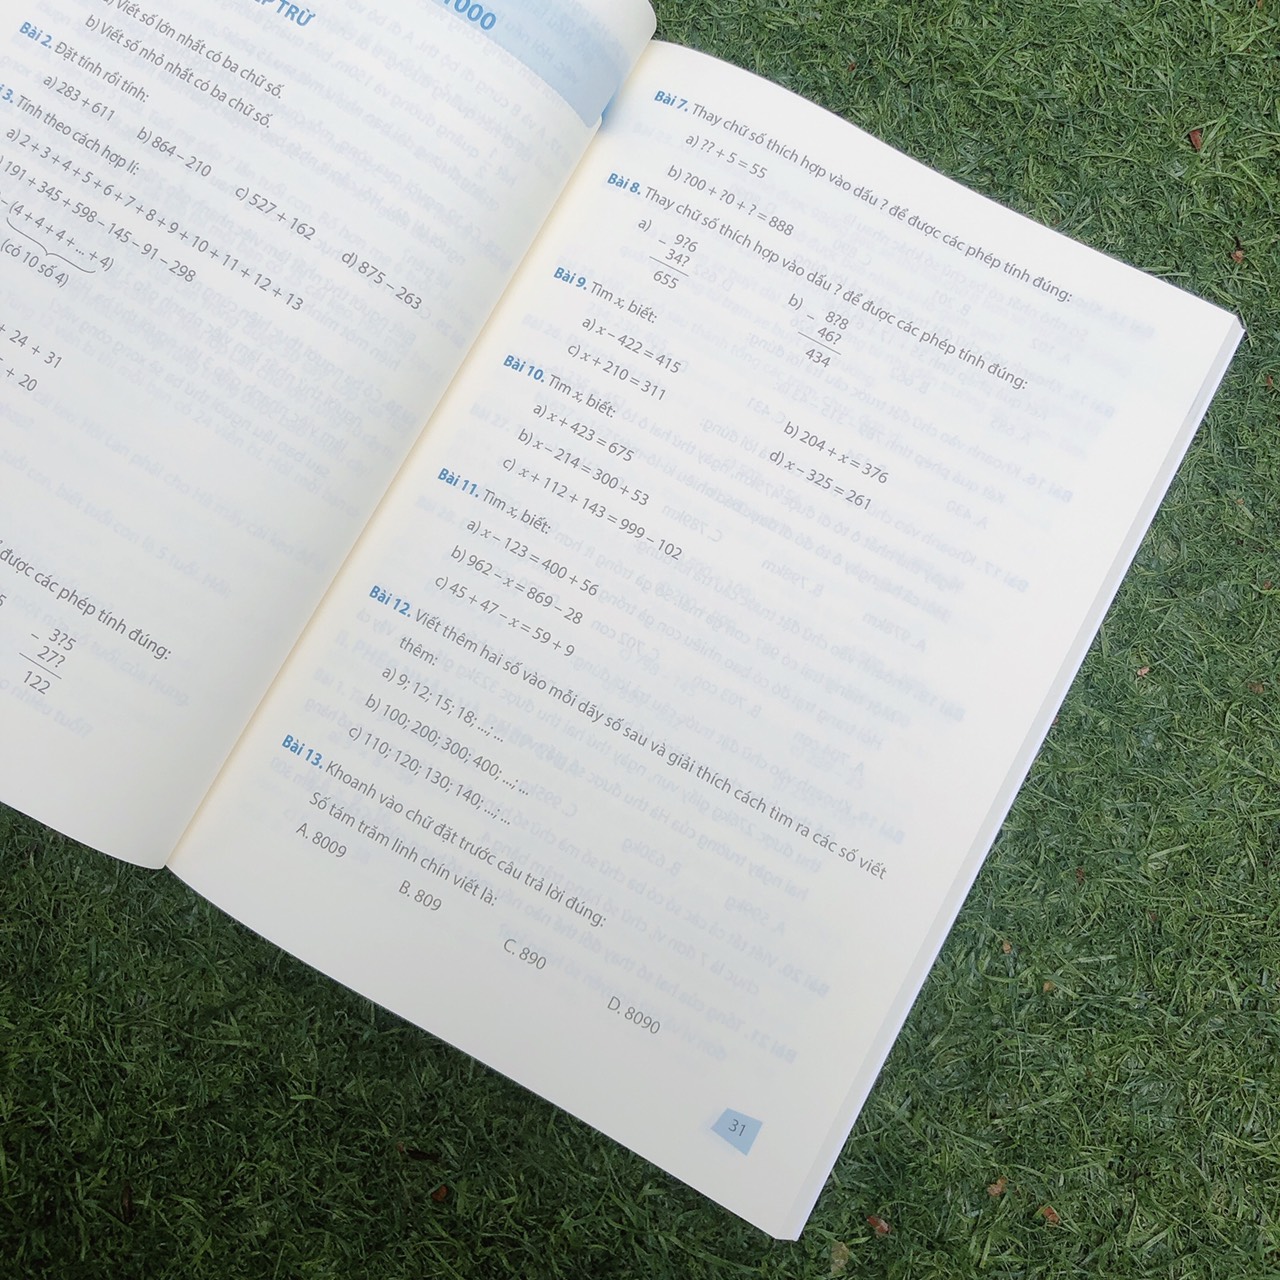 1000
ẾP TRỪ
a) Viết số lớn nhất có ba chữ số.
b) Viết số nhỏ nhất có ba chữ số.
Bài 2. Đặt tính rồi tính:
a) 283 + 611 b) 864 – 210 c) 527 + 162 d) 875 – 263
3. Tính theo cách hợp lí:
a) 2 + 3 + 4 + 5 + 6 + 7 + 8 + 9 + 10 + 11 + 12 + 13
191 + 345 + 598 – 145 – 91 – 298
– (4 + 4 + 4 + ... + 4)
(có 10 số 4)
+ 24 + 31
+ 20
được các phép tính đúng:
– 3?5
27?
122
Bài 7. Thay chữ số thích hợp vào dấu ? để được các phép tính đúng:
a) ?? + 5 = 55
b) ?00 + ?0 + ? = 888
Bài 8. Thay chữ số thích hợp vào dấu ? để được các phép tính đúng:
a) – 9?6 b) – 8?8
34? 46?
655 434
Bài 9. Tìm x, biết:
a) x – 422 = 415 b) 204 + x = 376
c) x + 210 = 311 d) x – 325 = 261
Bài 10. Tìm x, biết:
a) x + 423 = 675
b) x – 214 = 300 + 53
c) x + 112 + 143 = 999 – 102
Bài 11. Tìm x, biết:
a) x – 123 = 400 + 56
b) 962 – x = 869 – 28
c) 45 + 47 – x = 59 + 9
Bài 12. Viết thêm hai số vào mỗi dãy số sau và giải thích cách tìm ra các số viết
thêm:
a) 9; 12; 15; 18; ...; ...
b) 100; 200; 300; 400; ...; ...
c) 110; 120; 130; 140; ...; ...
Bài 13. Khoanh vào chữ đặt trước câu trả lời đúng:
Số tám trăm linh chín viết là:
A. 8009 B. 809 C. 890 D. 8090
31